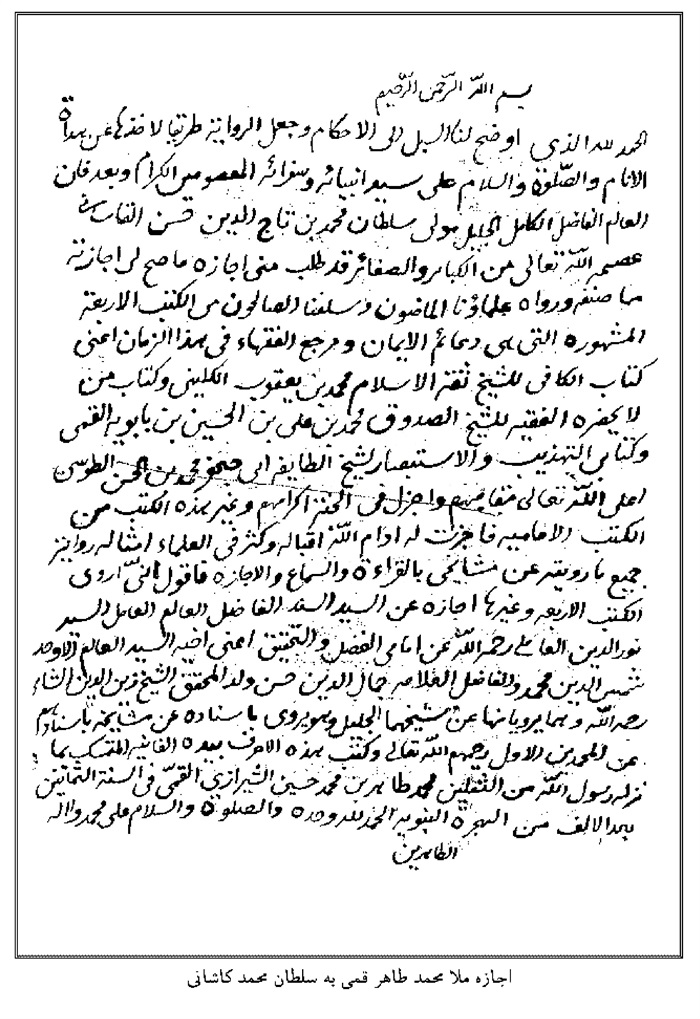 بسم الله الرحمن الرحیم
الحمد لله الذی اوضح لنا السبل الی الاحکام وجعل الروایة طریقا لاخذها عن هداة
الانام والصلوة والسلام علی سید انبیائه وسفرائه المعصومین الکرام وبعد فان
العالم الفاضل الکامل الجلیل مولی سلطان محمد بن تاج الدین حسن القاسانی
عصمه الله تعالی من الکبائر والصغائر قد طلب منی اجازه ما صح لی اجازته
مما صنفه ورواه علماؤنا الماضون وسلفنا الصالحون من الکتب الاربعة
المشهوره التی هی دعائم الایمان ومرجع الفقهاء فی هذا الزمان اعنی
کتاب الکافی للشیخ ثقة الاسلام محمد بن یعقوب الکلینی وکتاب من
لا یحضره الفقیه للشیخ الصدوق محمد بن علی بن الحسین بن بابویه القمی
وکتابی التهذیب والاستبصار لشیخ الطایفه ابی جعفر محمد بن الحسن الطوسی
اعلی الله تعالی مقامهم واجزل فی الجنة اکرامهم وغیر هذه الکتب من
الکتب الامامیه فاجزت له ادام الله اقباله وکثر فی العلماء امثاله روایة
جمیع ما رویته عن مشایخی بالقراءة والسماع والاجازه فاقول انی اروی
الکتب الاربعه وغیرها اجازه عن السید السند الفاضل العالم العامل السید
نورالدین العاملی رحمه الله عن امامی الفضل والتحقیق اعنی اخیه السید العالم الاوحد
شمس الدین محمد والفاضل العلامه جمال الدین حسن ولد المحقق الشیخ زین الدین
رحمه الله وهما یرویانها عن مشیخهما الجلیل وهو یروی باسناده عن مشایخه باسنادهم
عن المحمدین الاول رحمهم الله تعالی وکتب هذه الاحرف بیده الفانیه المتمسک بما
نزله رسول الله من الثقلین محمد طاهر بن محمد حسین الشیرازی القمی فی السنة الثمانین
بعد الالف من الهجرة النبویه الحمد لله وحده والصلوة والسلام علی محمد واله
الطاهرین
اجازه ملا محمد طاهر قمی به سلطان محمد کاشانی